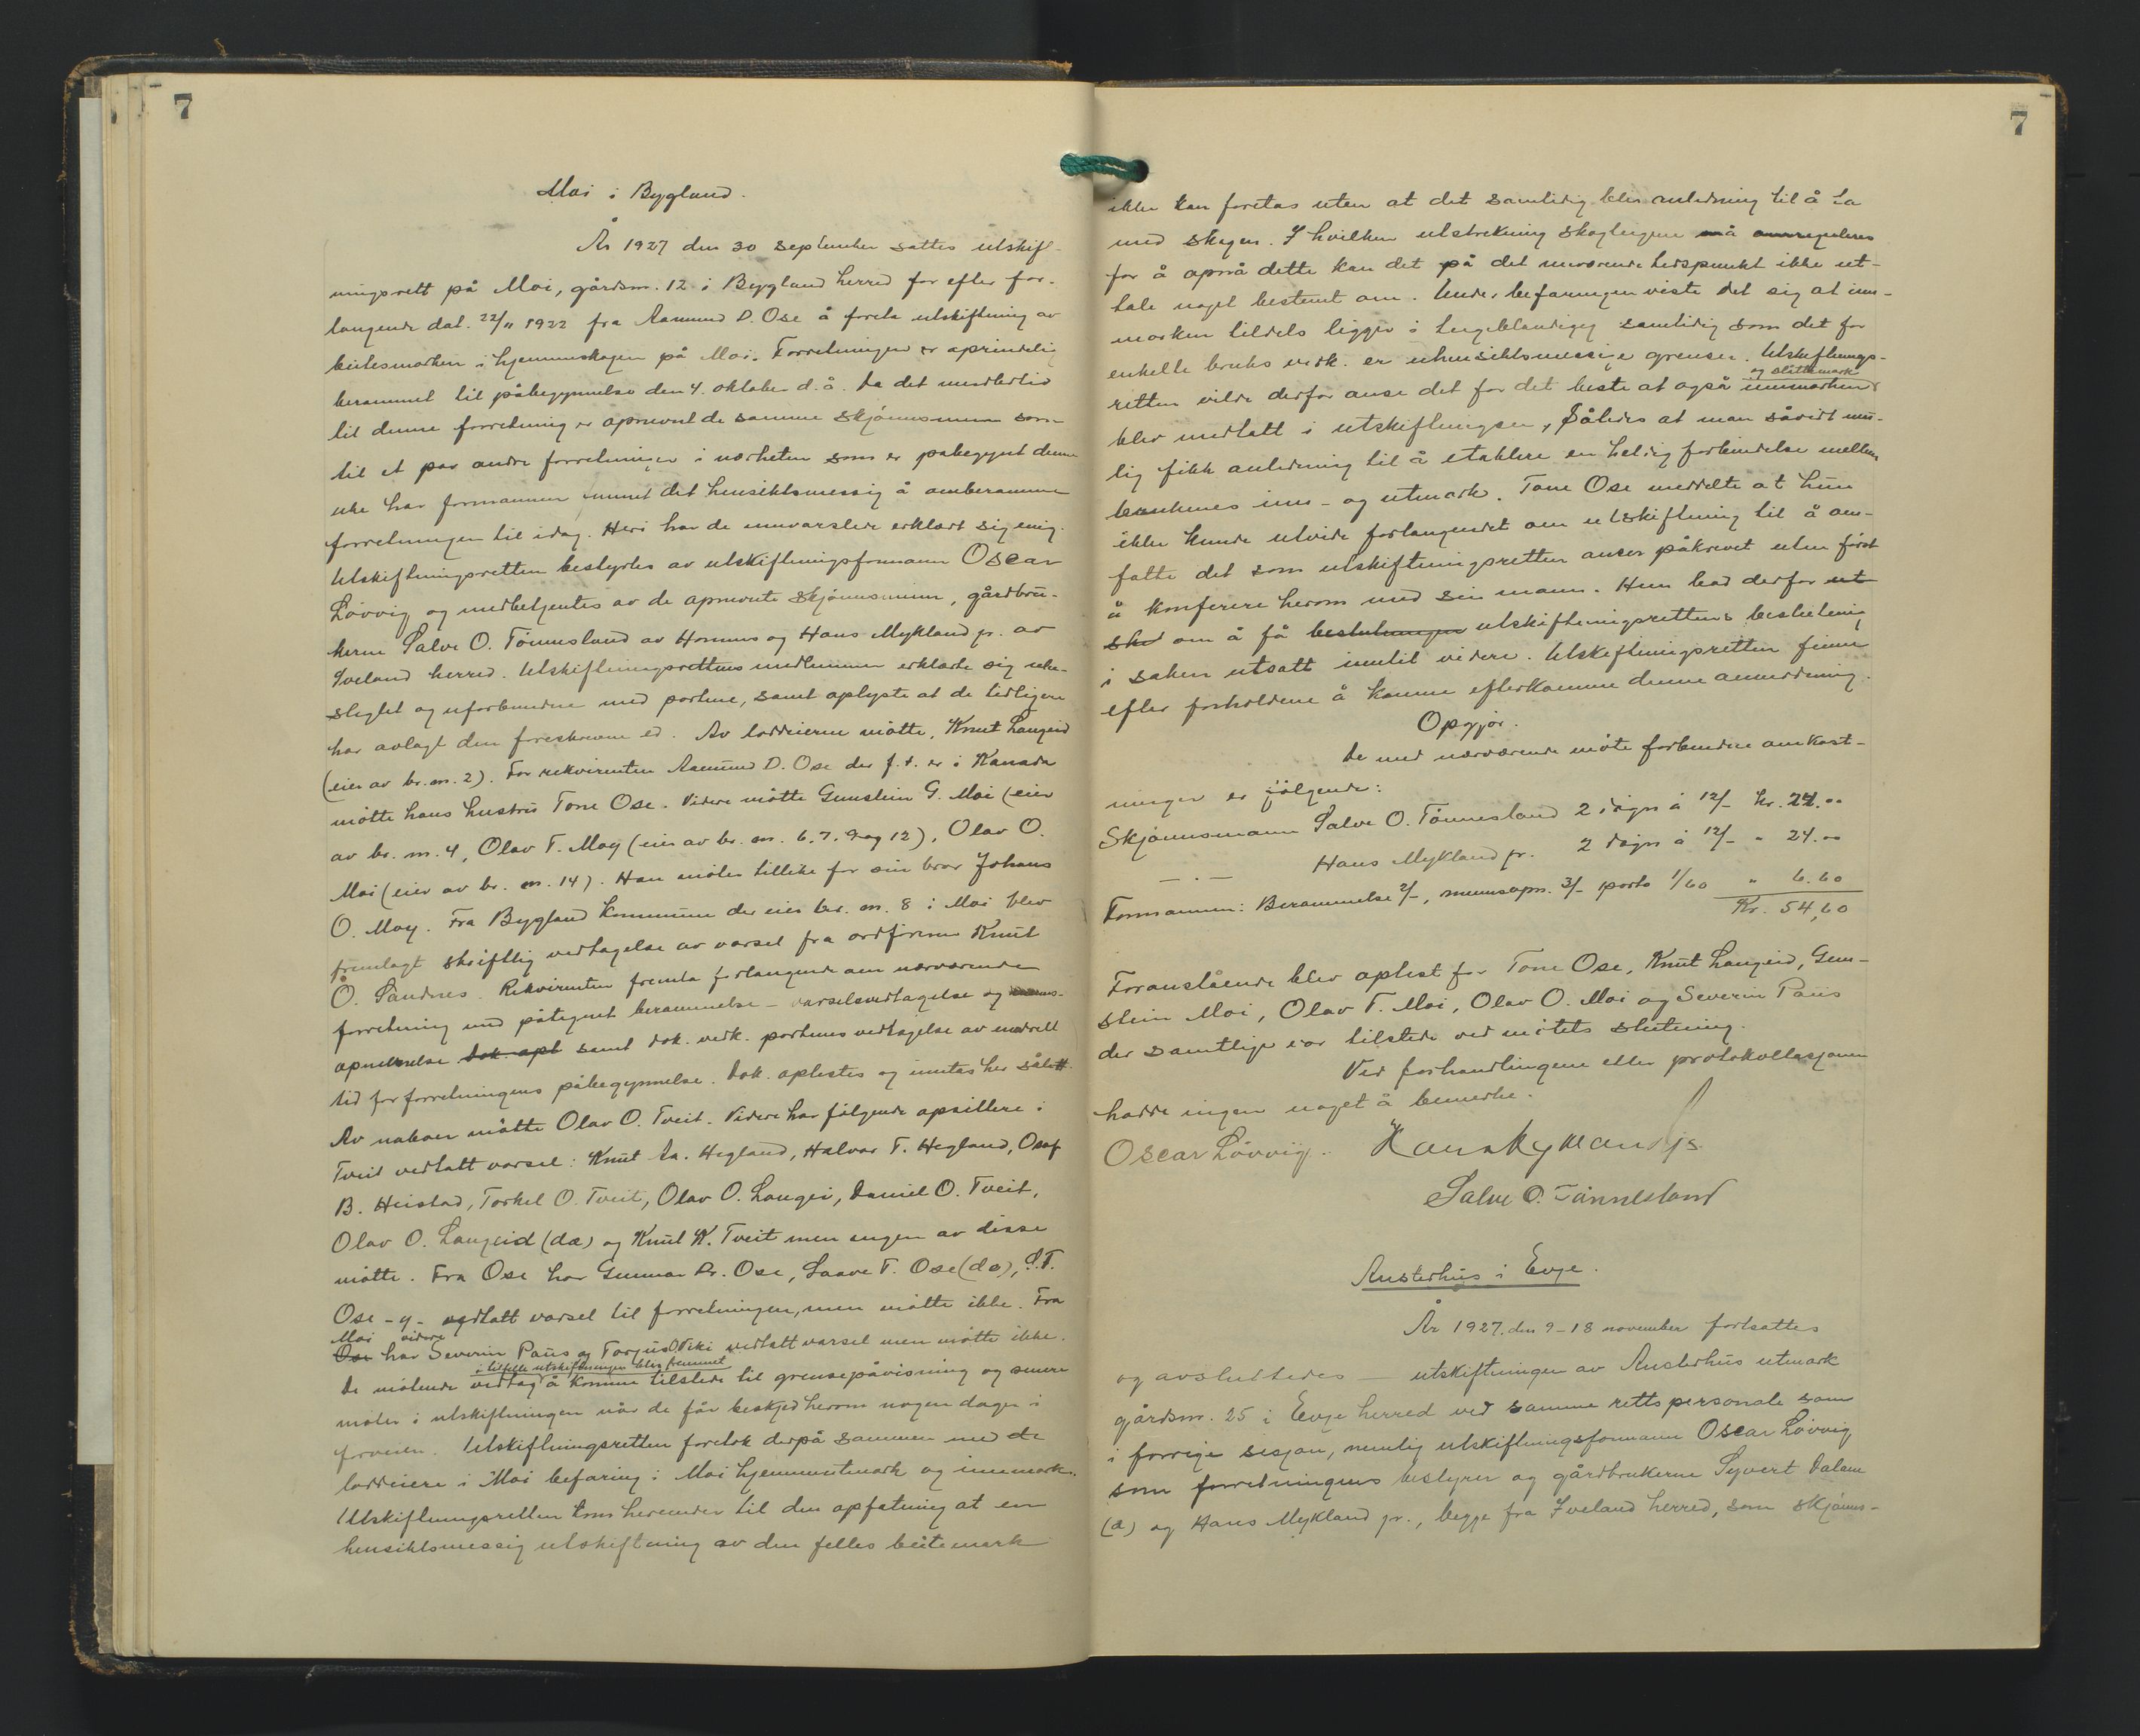 7
Moi i Bygland.
År 1927 den 30 september sattes utskift-
ningsrett på Moi, gårdsnr. 12 i Bygland herred for efter for-
langende dat. 22/11 1922 fra Aamund D. Ose å foreta utskiftning av
beitesmarken i hjemmeskogen på Moi. Forretningen er oprindelig
berammet til påbegynnelse den 4. oktober d.å. Da det imidlertid
til denne forretning er opnevnt de samme skjønnsmenn som
til et par andre forretninger i nærheten som er påbegynt denne
uke har formannen funnet det hensiktsmessig å omberamme
forretningen til idag. Heri har de innvarslede erklært sig enig.
Utskiftningsretten bestyrtes av utskiftningsformann Oscar
Løvvig og medbetjentes av de opnevnte skjønnsmenn, gårdbru-
kerne Salve O. Tønnesland av Hornnes og Hans Mykland jr. av
Iveland herred. Utskiftningsrettens medlemmer erklærte sig ube-
slegtet og uforbundne med partene, samt oplyste at de tidligere
har avlagt den foreskrevne ed. Av loddeierne møtte, Knut Langeid
(eier av br. nr. 2). For rekvirenten Aamund D. Ose der f.t. er i Kanada
møtte hans hustru Tone Ose. Videre møtte Gunstein G. Moi (eier
av br. nr. 4, Olav T. Moy (eier av br. nr. 6, 7, 9 og 12), Olav O.
Moi (eier av br. nr. 14). Han møter tillike for sin bror Johans
O. Moy. Fra Bygland Kommune der eier br. nr. 8 i Moi blev
fremlagt skriftlig vedtagelse av varsel fra ordføreren Knut
O. Sandnes. Rekvirenten fremla forlangende om nærværende
forretning med påtegnet berammelse - varselsvedtagelse og manns-
opnevnelse dok. opl samt dok. vedk. partenes vedtagelse av endrett
tid for forretningens påbegynnelse. Dok. oplestes og inntas her sålett.
Av naboer møtte Olav O. Tveit. Videre har følgende opsittere i
Tveit vedtatt varsel: Knut Aa. Hegland, Halvor T. Hegland, Olaf
B. Heistad, Torkel O. Tveit, Olav O. Langei, Daniel O. Tveit,
Olav O. Langeid (da) og Knut K. Tveit men ingen av disse
møtte. Fra Ose har Gunnar Dr. Ose, Saave T. Ose (da), S.T.
Ose - y - vedtatt varsel til forretningen, men møtte ikke. Fra
Moi videre
Ose har Severin Paus og Torjus O. Viki vedtatt varsel men møtte ikke.
i tilfelle utskiftningen blev fremmet
De møtende vedtog å komme tilstede til grensepåvisning og senere
møter i utskiftningen når de får beskjed herom nogen dager i
forveien. Utskiftningsretten foretok derpå sammen med de
loddeiere i Moi befaring i Moi hjemmeutmark og innmark.
Utskiftningsretten kom herunder til den opfatning at en
hensiktsmessig utskiftning av den felles beitemark
7
ikke kan foretas uten at det samtidig blir anledning til å ta
med skogen. I hvilken utstrekning skogteigene må omreguleres
for å opnå dette kan det på det nuværende tidspunkt ikke ut-
tale noget bestemt om. Under befaringen viste det sig at inn-
marken tildels ligger i teigblandigg samtidig som det for
enkelte bruks vedk. er uhensiktsmessige grenser. Utskiftnings-
og slåttemark
retten vilde derfor anse det for det beste at også innmarken
blev medtatt i utskiftningen, således at man såvidt mu-
lig fikk anledning til å etablere en heldig forbindelse mellem
brukenes inn- og utmark. Tone Ose meddelte at hun
ikke kunde utvide forlangendet om utskiftning til å om-
fatte det som utskiftningsretten anser påkrevet uten først
å konferere herom med sin mann. Hun bad derfor ut
sket om å få beslutningen utskiftningsrettens beslutning
i saken utsatt inntil videre. Utskiftningsretten finner
efter forholdene å kunne efterkomme denne anmodning.
Opgjør.
De med nærværende møte forbundne omkost-
ninger er følgende:
Skjønnsmann Salve O. Tønnesland 2 døgn à 12/- kr. 24.00
- . - Hans Mykland jr. 2 døgn à 12/- " 24.00
Formannen: Berammelse 2/-, mannsopn. 3/- porto 1/60 " 6.60
Kr. 54,60
Foranstående blev oplest for Tone Ose, Knut Langeid, Gun-
stein Moi, Olav T. Moi, Olav O. Moi og Severin Paus
der samtlige var tilstede ved møtets slutning.
Ved forhandlingene eller protokollasjonen
hadde ingen noget å bemerke.
Oscar Løvvig. Hans Mykland js.
Salve O. Tønnesland
Austerhus i Evje.
År 1927. den 9-18 november fortsattes
og avsluttedes - utskiftningen av Austerhus utmark
gårdsnr. 25 i Evje herred ved samme rettspersonale som
i forrige sesjon, nemlig utskiftningsformann Oscar Løvvig
som forretningens bestyrer og gårdbrukerne Syvert Dalane
(d) og Hans Mykland jr., begge fra Iveland herred, som skjønns-